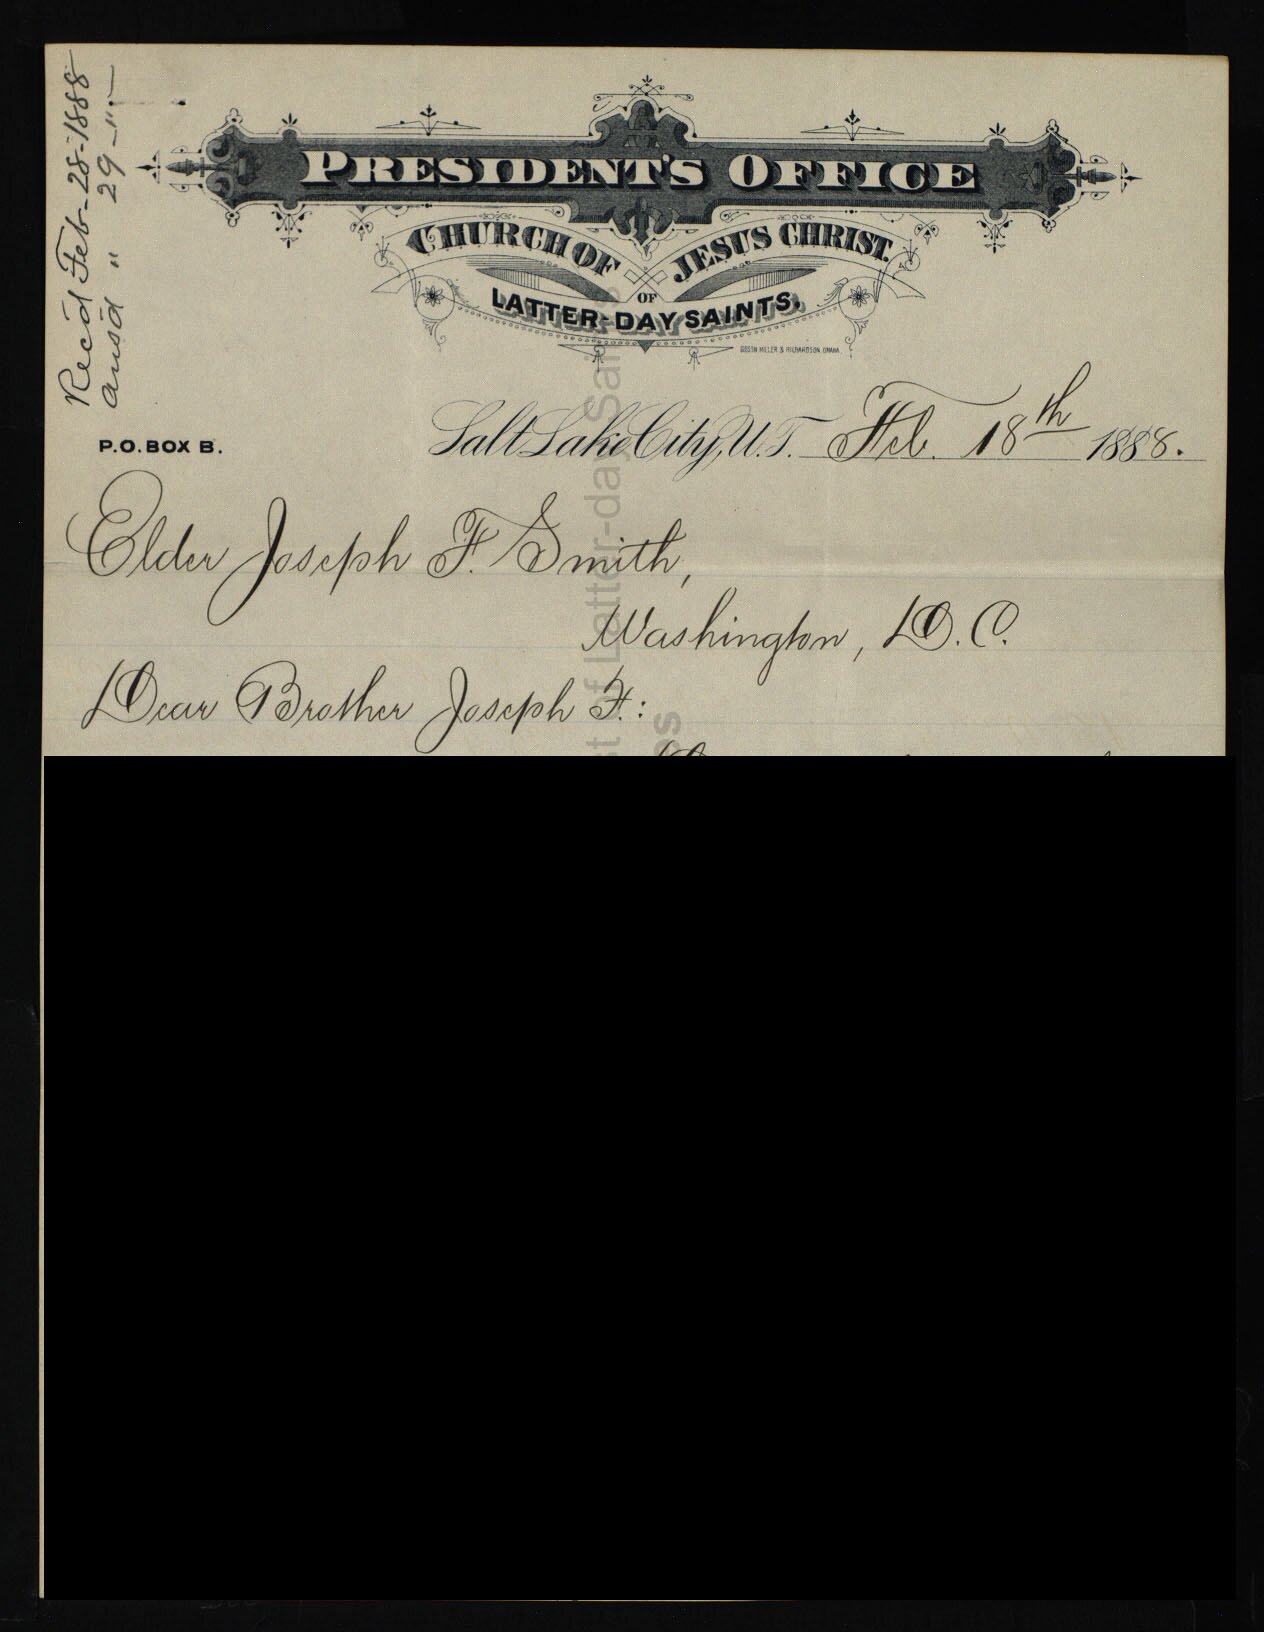 Rec'd Feb-28-1888
ansd " 29-"-
PRESIDENT'S OFFICE
CHURCH OF JESUS CHRIST
OF
LATTER-DAY SAINTS.
GIBSON MILLER & RICHARDSON, OMAHA.
P.O. BOX B.
Salt Lake City, U.T. Feb. 18th 1888.
Elder Joseph F. Smith,
Washington, D.C.
Dear Brother Joseph F.: